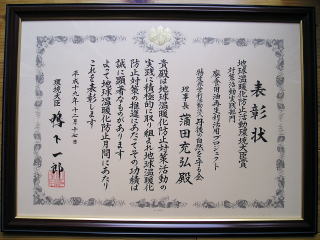 表彰状
地球温暖化防止活動環境大臣賞
対策活動実践部門
廃食用油再生利活用プロジェクト
特定非営利活動法人丹後の自然を守る会
理事長 蒲田充弘殿
貴殿は地球温暖化防止対策活動の
実践に積極的に取り組まれ地球温暖化
防止対策の推進にあたってその功績は
誠に顕著なものがあります
よって地球温暖化防止月間にあたり
これを表彰します
平成十九年十二月十七日
環境大臣 鴨下一郎